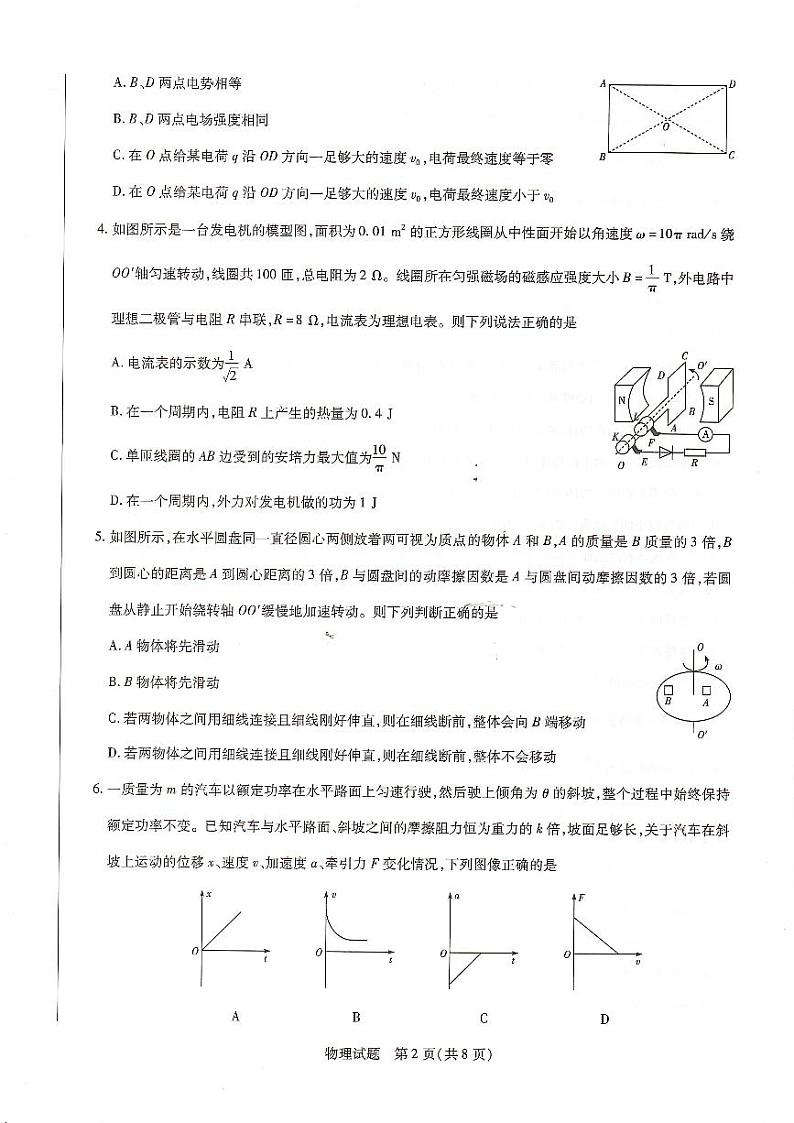 A. B、D 两点电势相等
B. B、D 两点电场强度相同
C. 在 O 点给某电荷 q 沿 OD 方向一足够大的速度 v₀,电荷最终速度等于零
D. 在 O 点给某电荷 q 沿 OD 方向一足够大的速度 v₀,电荷最终速度小于 v₀
A
D
O
B
C
4. 如图所示是一台发电机的模型图,面积为 0.01 m² 的正方形线圈从中性面开始以角速度 ω=10π rad/s 绕
OO′轴匀速转动,线圈共100 匝,总电阻为 2 Ω。线圈所在匀强磁场的磁感应强度大小 B=1/π T,外电路中
理想二极管与电阻 R 串联,R=8 Ω,电流表为理想电表。则下列说法正确的是
A. 电流表的示数为1/√2 A
B. 在一个周期内,电阻 R 上产生的热量为 0.4 J
C. 单匝线圈的 AB 边受到的安培力最大值为10/π N
D. 在一个周期内,外力对发电机做的功为 1 J
C
O′
D
N
S
L
B
A
K
F
A
O
E
R
5. 如图所示,在水平圆盘同一直径圆心两侧放着两可视为质点的物体 A 和 B,A 的质量是 B 质量的 3 倍,B
到圆心的距离是 A 到圆心距离的 3 倍,B 与圆盘间的动摩擦因数是 A 与圆盘间动摩擦因数的 3 倍,若圆
盘从静止开始绕转轴 OO′缓慢地加速转动。则下列判断正确的是
A. A 物体将先滑动
B. B 物体将先滑动
C. 若两物体之间用细线连接且细线刚好伸直,则在细线断前,整体会向 B 端移动
D. 若两物体之间用细线连接且细线刚好伸直,则在细线断前,整体不会移动
O
ω
B
A
O′
6. 一质量为 m 的汽车以额定功率在水平路面上匀速行驶,然后驶上倾角为 θ 的斜坡,整个过程中始终保持
额定功率不变。已知汽车与水平路面、斜坡之间的摩擦阻力恒为重力的 k 倍,坡面足够长,关于汽车在斜
坡上运动的位移 x、速度 v、加速度 a、牵引力 F 变化情况,下列图像正确的是
x
O
t
v
O
t
a
O
t
F
O
v
A
B
C
D
物理试题 第 2 页(共 8 页)